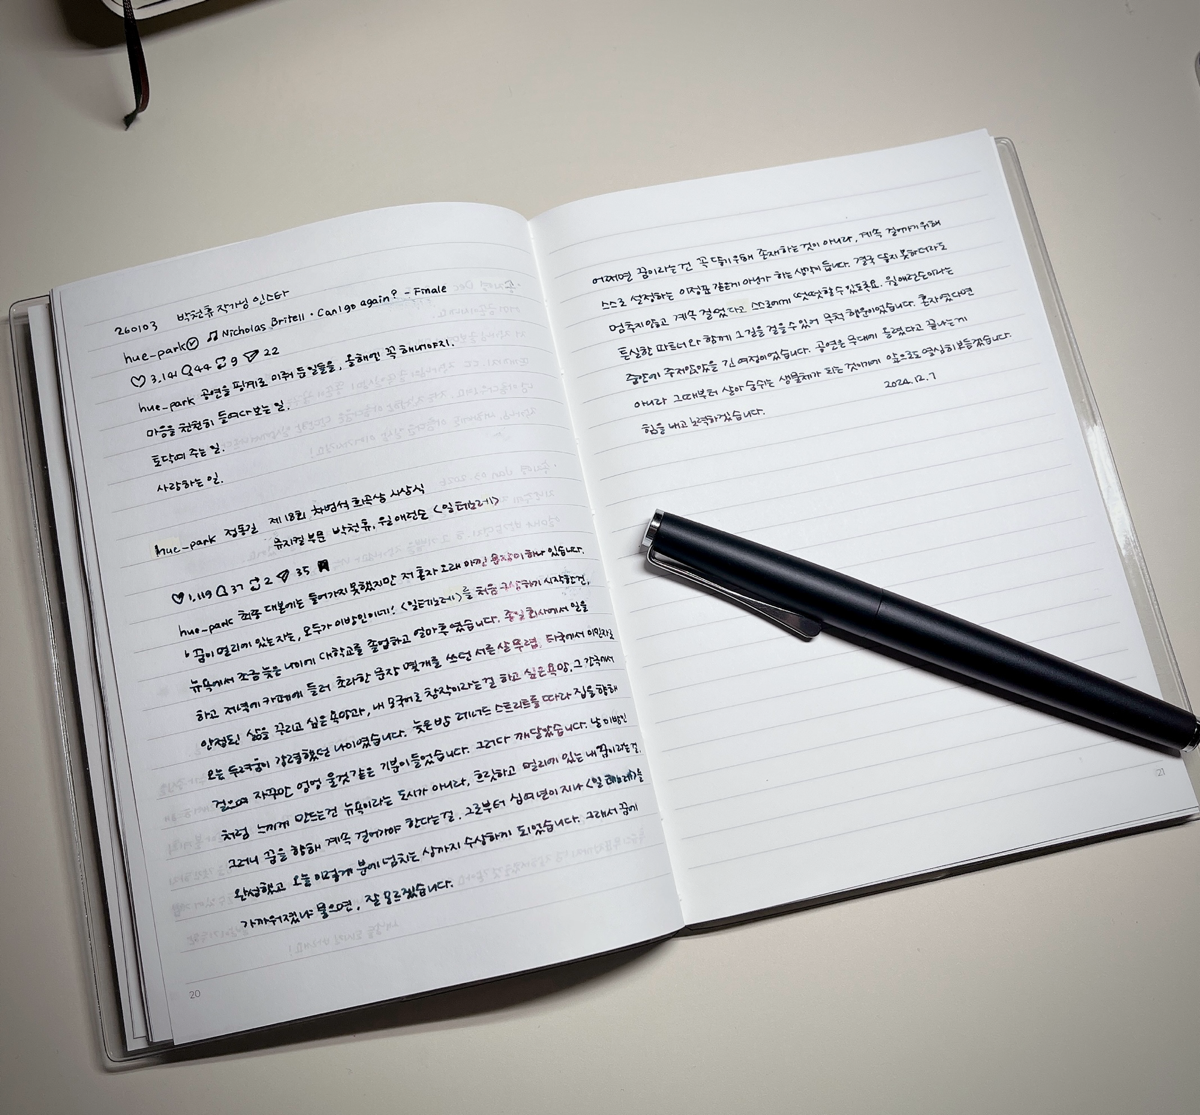 260103 박천휴 작가님 인스타
hue-park ♫ Nicholas Britell · Can I go again? - Finale
♡ 3,141 44 9 22
hue_park 공연을 핑계로 미뤄 둔 일들을, 올해엔 꼭 해내야지.
마음을 천천히 들여다 보는 일.
토닥여 주는 일.
사랑하는 일.
hue_park 정동길 제 18회 차범석 희곡상 시상식
뮤지컬 부문 박천휴, 윌 애런슨 <일 테노레>
♡ 1,119 37 2 35
hue_park 최종 대본에는 들어가지 못했지만 저 혼자 오래 아낀 문장이 하나 있습니다.
'꿈이 멀리에 있는 자는, 모두가 이방인이네! <일 테노레>를 처음 구상하기 시작한 건,
뉴욕에서 조금 늦은 나이에 대학교를 졸업하고 얼마 후였습니다. 종일 회사에서 일을
하고 저녁에 카페에 들러 초라한 문장 몇 개를 쓰던 서른 살 무렵. 타국에서 이민자로
안정된 삶을 꾸리고 싶은 욕망과, 내 모국어로 창작이라는 걸 하고 싶은 욕망. 그 간극에서
오는 두려움이 강렬했던 나이였습니다. 늦은 밤 레너드 스트리트를 따라 집을 향해
걸으며 자꾸만 엉엉 울 것 같은 기분이 들었습니다. 그러다 깨달았습니다. 날 이방인
처럼 느끼게 만드는 건 뉴욕이라는 도시가 아니라, 흐릿하고 멀리에 있는 내 꿈이라는 걸.
그러니 꿈을 향해 계속 걸어가야 한다는 걸. 그로부터 십여 년이 지나 <일 테노레>를
완성했고 오늘 이렇게 분에 넘치는 상까지 수상하게 되었습니다. 그래서 꿈에
가까워졌냐 물으면, 잘 모르겠습니다.
20
어쩌면 꿈이라는 건 꼭 닿기 위해 존재하는 것이 아니라, 계속 걸어가기 위해
스스로 설정하는 이정표 같은 게 아닌가 하는 생각이 듭니다. 결국 닿지 못하더라도
멈추지 않고 계속 걸었다고 스스로에게 떳떳할 수 있도록요. 윌 애런슨이라는
든실한 파트너와 함께 그 길을 걸을 수 있어 무척 행운이었습니다. 혼자였다면
중간에 주저앉았을 긴 여정이었습니다. 공연은 무대에 올렸다고 끝나는 게
아니라 그때부터 살아 숨쉬는 생물체가 되는 것이기에 앞으로도 열심히 보듬겠습니다.
힘을 내고 노력하겠습니다. 2024.12.7
21